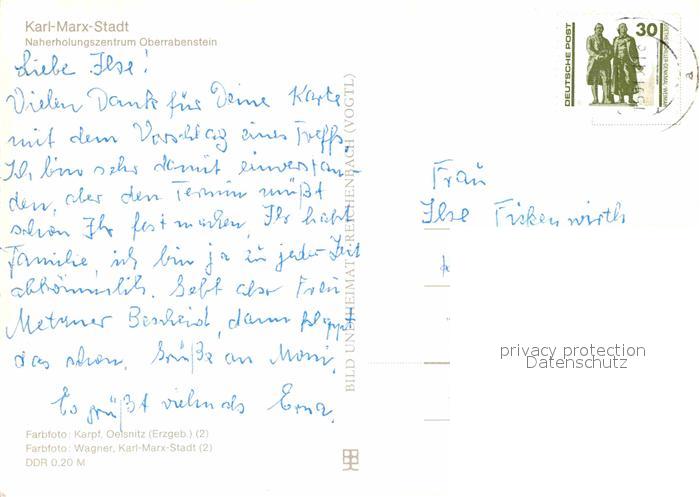 Karl-Marx-Stadt
Naherholungszentrum Oberrabenstein
Liebe Ilse!
Vielen Dank für Deine Karte
mit dem Vorschlag eines Treffs.
Ich bin sehr damit einverstan-
den, aber den Termin müßt
schon Ihr festmachen, Ihr habt
Familie, ich bin ja zu jeder Zeit
abkömmlich. Gebt aber Frau
Metzner Bescheid, dann klappt
das schon. Grüße an Moni,
Es grüßt vielmals Erna.
Farbfoto: Karpf, Oelsnitz (Erzgeb.) (2)
Farbfoto: Wagner, Karl-Marx-Stadt (2)
DDR 0,20 M
BILD UND HEIMAT REICHENBACH (VOGTL)
DEUTSCHE POST
30
Frau
Ilse Fickenwirth
privacy protection
Datenschutz